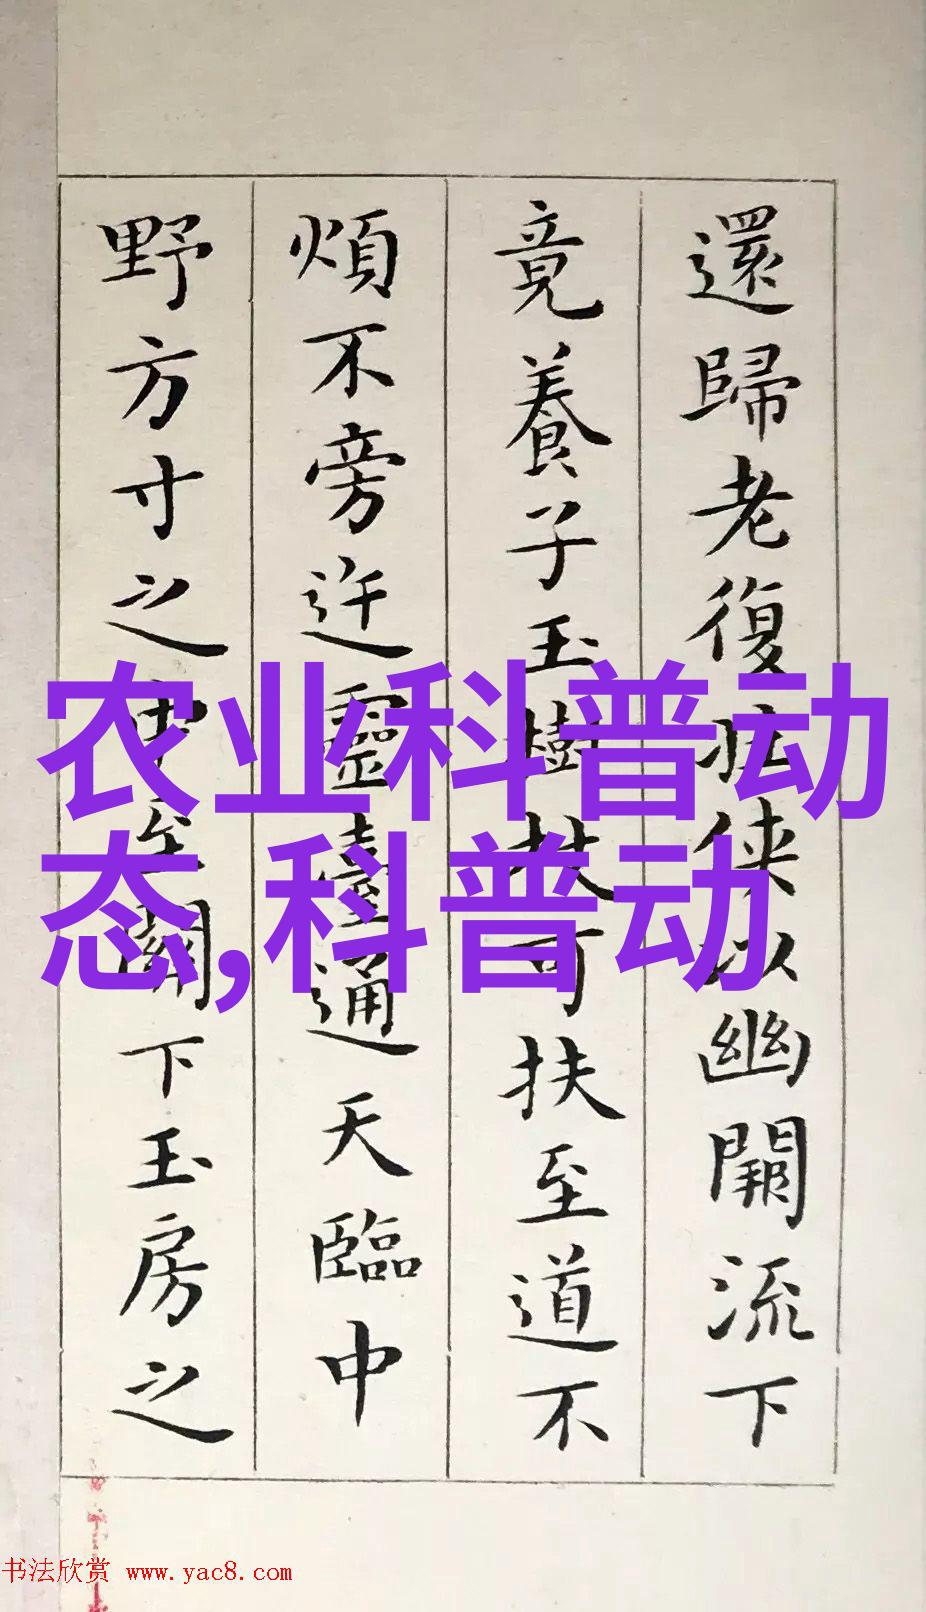 還歸老復壯侠以幽闕流下
竟養子玉樹杖可扶至道不
煩不旁迕靈臺通天臨中
野方寸之中至關下玉房之
农业科普动
态,科普动
书法欣赏 www.yac8.com